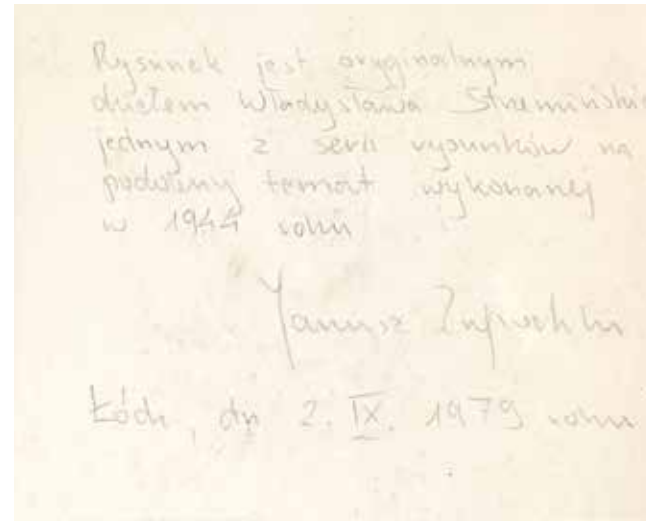 Rysunek jest oryginalnym
dziełem Władysława Strzemińskie
jednym z serii rysunków na
podobny temat wykonanej
w 1944 roku
Janusz
Łódź, dn 2. IX. 1979 roku